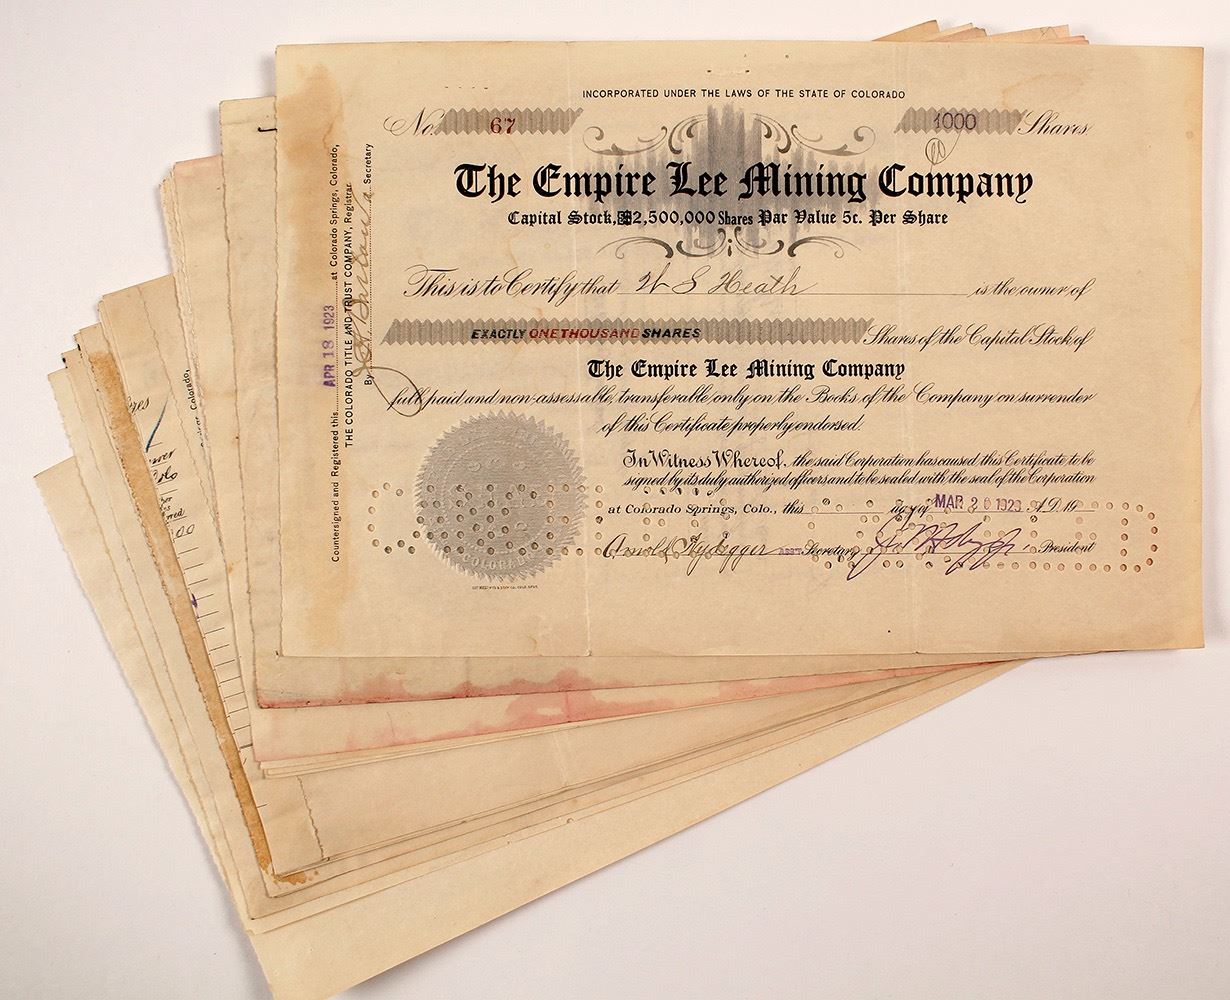 INCORPORATED UNDER THE LAWS OF THE STATE OF COLORADO
No. 67
1000 Shares
The Empire Lee Mining Company
Capital Stock, 2,500,000 Shares Par Value 5c. Per Share
This is to Certify that W S Heath is the owner of
EXACTLY ONE THOUSAND SHARES Shares of the Capital Stock of
The Empire Lee Mining Company
full paid and non-assessable, transferable only on the Books of the Company on surrender
of this Certificate properly endorsed.
In Witness Whereof, the said Corporation has caused this Certificate to be
signed by its duly authorized officers and to be sealed with the seal of the Corporation
at Colorado Springs, Colo., this day of MAR 20 1923 A.D. 19
Arnold Heydegger ASS'T Secretary President
COLORADO
Countersigned and Registered this APR 18 1923 at Colorado Springs, Colorado,
THE COLORADO TITLE AND TRUST COMPANY, Registrar
By Secretary
Colorado,